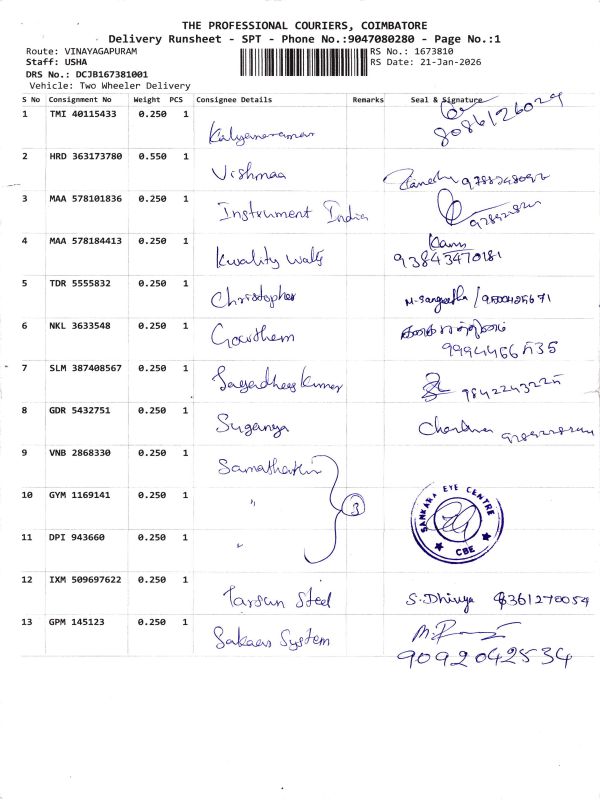 THE PROFESSIONAL COURIERS, COIMBATORE
Delivery Runsheet - SPT - Phone No.:9047080280 - Page No.:1
Route: VINAYAGAPURAM RS No.: 1673810
Staff: USHA RS Date: 21-Jan-2026
DRS No.: DCJB167381001
Vehicle: Two Wheeler Delivery
S No Consignment No Weight PCS Consignee Details Remarks Seal & Signature
1 TMI 40115433 0.250 1
Kalyanaraman 8086126029
2 HRD 363173780 0.550 1
Vishmaa
3 MAA 578101836 0.250 1
Instrument India
4 MAA 578184413 0.250 1
Kwality walls 93843470181
5 TDR 5555832 0.250 1
Christopher M. Sangeetha /
6 NKL 3633548 0.250 1
Gowthem
9994466535
7 SLM 387408567 0.250 1
9842243225
8 GDR 5432751 0.250 1
Suganya
9 VNB 2868330 0.250 1
10 GYM 1169141 0.250 1
" 3 SANKARA EYE CENTRE
11 DPI 943660 0.250 1
" CBE
12 IXM 509697622 0.250 1
Tarsun Steel S. Dhivya 9361270054
13 GPM 145123 0.250 1
System
9092042534